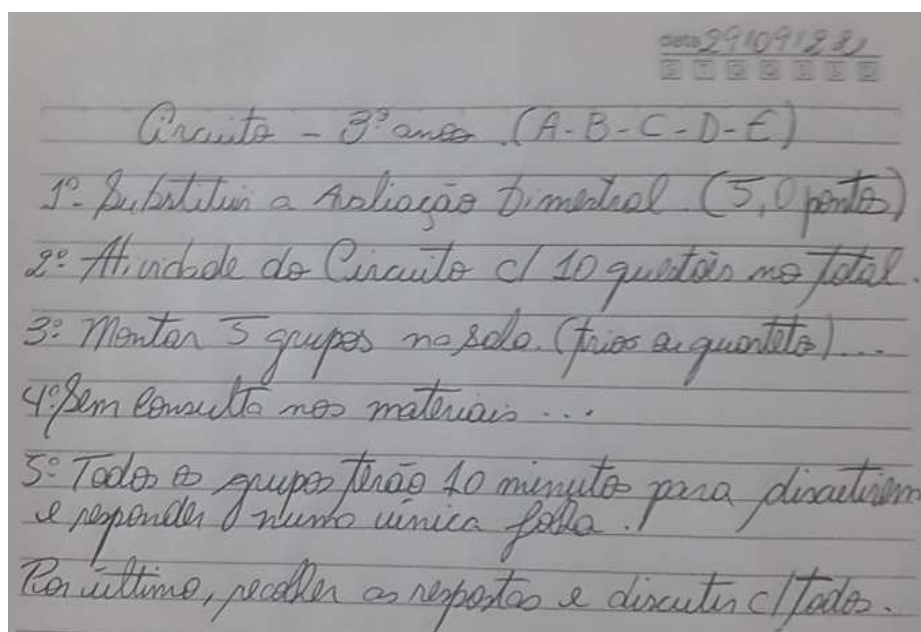 data 29/09/22
S T Q Q S S D
Circuito - 3º anos (A-B-C-D-E)
1º- Substituir a Avaliação bimestral. (5,0 pontos)
2º- Atividade do Circuito c/ 10 questões no total.
3º- Montar 5 grupos na sala. (trios ou quarteto)...
4º- Sem consulta nos materiais...
5º Todos os grupos terão 10 minutos para discutirem
e responder numa única folha.
Por último, recolher as respostas e discutir c/ todos.